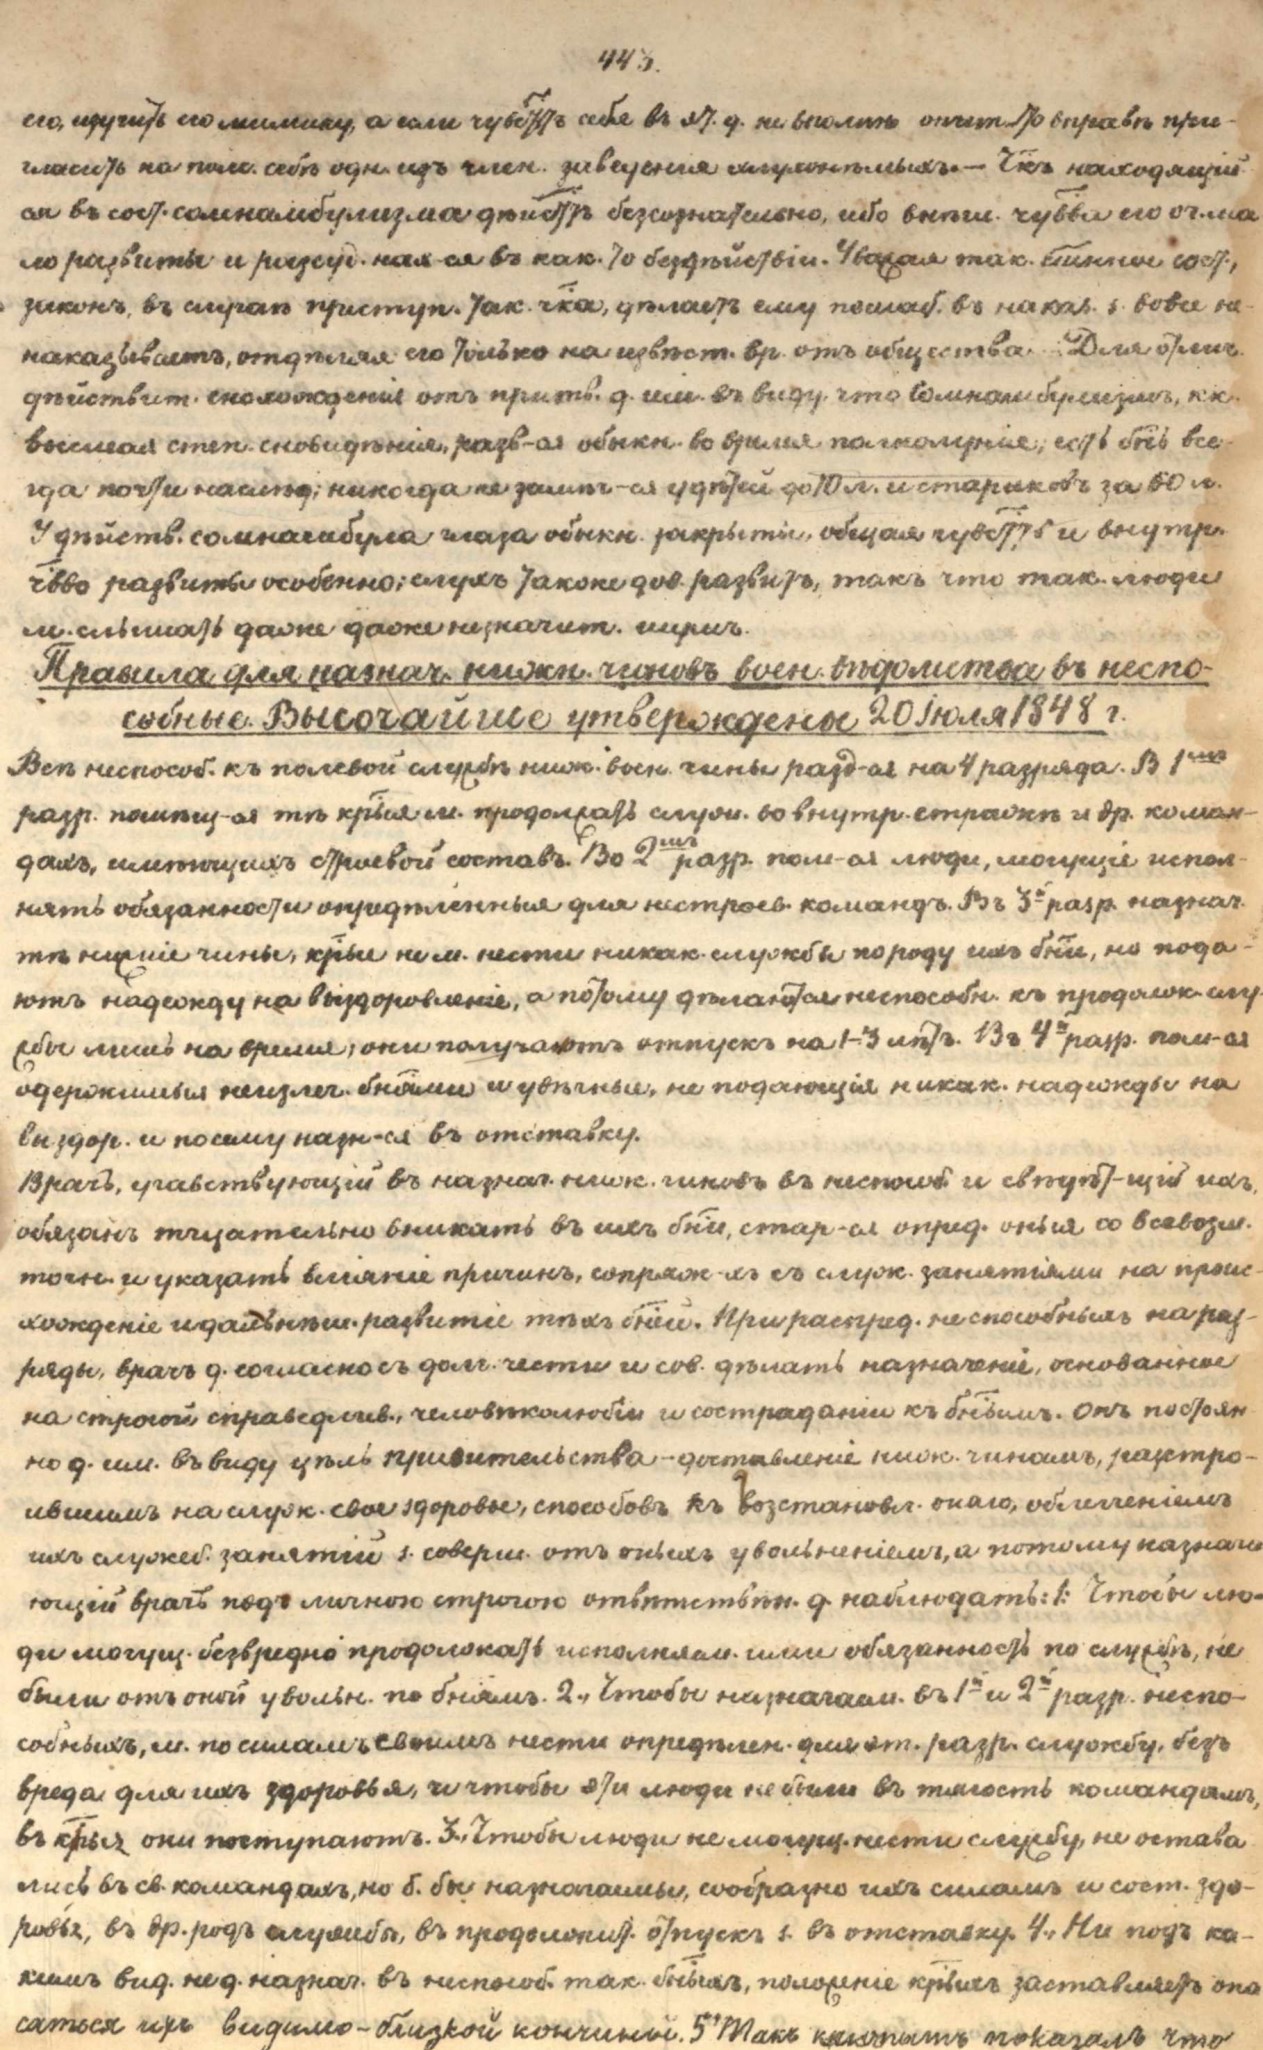 443.
его, изучить его мимику, а если чувств. себя въ эт. д. не вполнѣ опытн. то вправѣ при-
гласить на пом. себѣ одн. изъ член. заведенія глухонѣмыхъ. — Чкъ находящій
ся въ сост. сомнамбулизма дѣйств. безсознательно, ибо внѣш. чувва его оч. ма
ло развиты и разсуд. нах-ся въ как. то бездѣйствіи. Уважая так. сост.,
законъ, въ случаѣ преступ. так. чка, дѣлаетъ ему послаб. въ наказ. s. вовсе не
наказываетъ, отдѣляя его только на извѣст. вр. отъ общества. Для отлич.
дѣйствит. снохожденія отъ притв. д. им. въ виду, что сомнамбулизмъ, кк.
высшая степ. сновидѣнія, разв-ся обыкн. во время полнолунія, есть бнь все-
гда почти наслѣд; никогда не замѣч-ся у дѣтей до 10 л. и стариковъ за 60 л.
У дѣйств. сомнамбула глаза обыкн. закрыты, общая чувств и внутр.
чвво развиты особенно; слухъ также дов. развитъ, такъ что так. люди
м. слышать даже даже незначит. шумъ.
Правила для назнач. нижн. чиновъ воен. вѣдомства въ неспо-
собные. Высочайше утверждены 20 Іюля 1848 г.
Всѣ неспособ. къ полевой службѣ ниж. воен. чины разд-ся на 4 разряда. В 1мъ
разр. помѣщ-ся тѣ крыя м. продолжать служ. во внутр. стражѣ и др. коман-
дахъ, имѣющихъ строевой составъ. Во 2мъ разр. пом-ся люди, могущіе испол-
нять обязанности опредѣленныя для нестроев. командъ. Въ 3й разр. назнач.
тѣ нижніе чины, крые не м. нести никак. службы по роду ихъ бни, но пода-
ютъ надежду на выздоровленіе, а потому дѣлаются неспособн. къ продолж. слу
жбы лишь на время; они получаютъ отпускъ на 1-3 лѣтъ. Въ 4й разр. пом-ся
одержимыя неизлеч. бнями и увѣчные, не подающія никак. надежды на
выздор. и посему назн-ся въ отставку.
Врачъ, участвующій въ назнач. ниж. чиновъ въ неспособ. и свидѣт-щій ихъ,
обязанъ тщательно вникать въ ихъ бни, стар-ся опред. оныя со всевозм.
точн. и указать вліяніе причинъ, сопряж-хъ съ служ. занятіями на проис-
хожденіе и дальнѣш. развитіе тѣхъ бней. При распред. неспособныхъ на раз-
ряды, врачъ д. согласно съ долг. чести и сов. дѣлать назначеніе, основанное
на строгой справедлив., человѣколюбіи и состраданіи къ бнымъ. Онъ постоян-
но д. им. въ виду цѣль правительства - доставленіе ниж. чинамъ, разстро-
ившимъ на служ. свое здоровье, способовъ къ возстановл. онаго, облегченіемъ
ихъ служеб. занятій s. соверш. отъ оныхъ увольненіемъ, а потому назнача
ющій врачъ подъ личною строгою отвѣтствен. д. наблюдать: 1: Чтобы лю-
ди могущ. безвредно продолжать исполняем. ими обязанность по службѣ, не
были отъ оной увольн. по бнямъ. 2., Чтобы назначаем. въ 1й и 2й разр. неспо-
собныхъ, м. по силамъ своимъ нести опредѣлен. для эт. разр. службу, безъ
вреда для ихъ здоровья, и чтобы эти люди не были въ тягость командамъ,
въ крыя они поступаютъ. 3., Чтобы люди не могущ. нести службу, не остава
лись въ св. командахъ, но б. бы назначаемы, сообразно ихъ силамъ и сост. здо-
ровья, въ др. родъ службы, въ продолжит. отпускъ s. въ отставку. 4., Ни подъ ка-
кимъ вид. не д. назнач. въ неспособ. так. бныхъ, положеніе крыхъ заставляетъ опа
саться ихъ видимо-близкой кончины. 5., Такъ показалъ что